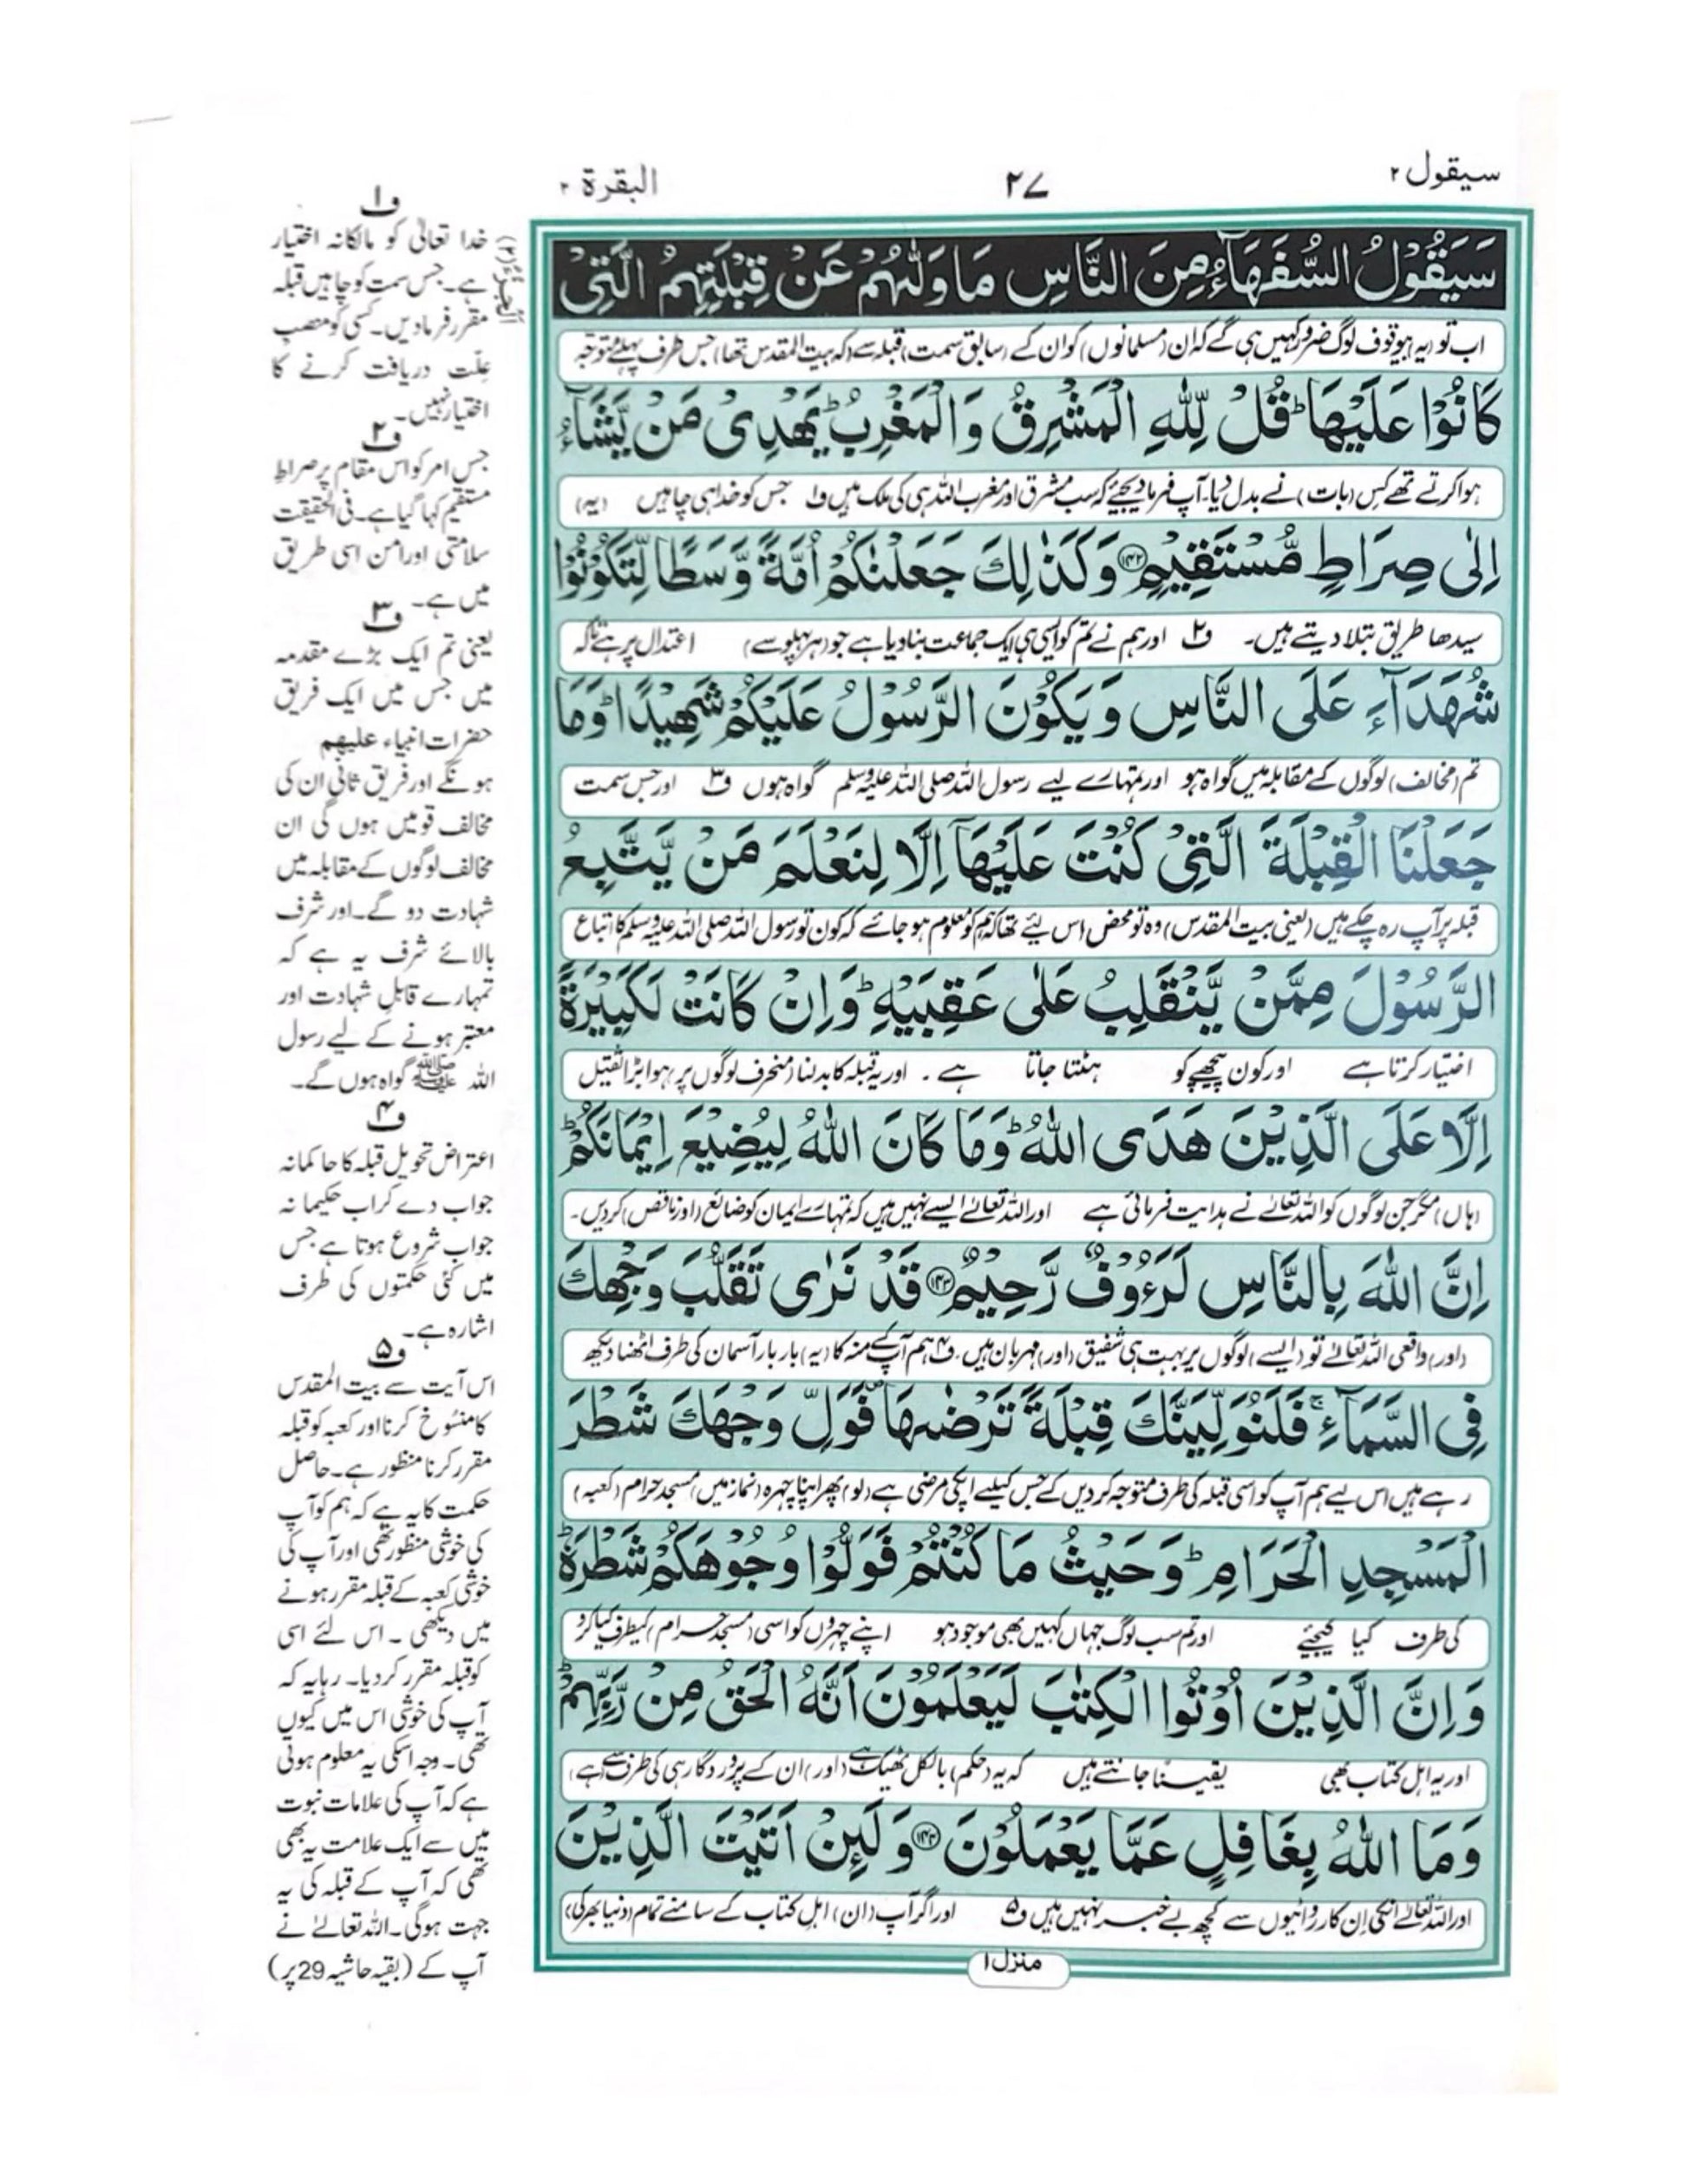 سیقول ۲
۲۷
البقرة ۲
سَيَقُوْلُ السُّفَهَآءُ مِنَ النَّاسِ مَا وَلّٰىهُمْ عَنْ قِبْلَتِهِمُ الَّتِیْ
اب تو (یہ) بیوقوف لوگ ضرور کہیں ہی گے کہ ان (مسلمانوں) کو ان کے (سابق سمت) قبلہ سے (کہ بیت المقدس تھا) جس طرف پہلے متوجہ
كَانُوْا عَلَيْهَا ؕ قُلْ لِّلّٰهِ الْمَشْرِقُ وَالْمَغْرِبُ ؕ يَهْدِیْ مَنْ يَّشَآءُ
ہوا کرتے تھے کس (بات) نے بدل دیا۔ آپ فرما دیجئے کہ سب مشرق اور مغرب اللہ ہی کی ملک ہیں ف۱ جس کو خدا ہی چاہیں (یہ)
اِلٰی صِرَاطٍ مُّسْتَقِيْمٍ ﴿۱۴۲﴾ وَكَذٰلِكَ جَعَلْنٰكُمْ اُمَّةً وَّسَطًا لِّتَكُوْنُوْا
سیدھا طریق بتلا دیتے ہیں۔ ف۲ اور ہم نے تم کو ایسی ہی ایک جماعت بنا دیا ہے جو (ہر پہلو سے) اعتدال پر ہے تاکہ
شُهَدَآءَ عَلَی النَّاسِ وَيَكُوْنَ الرَّسُوْلُ عَلَيْكُمْ شَهِيْدًا ؕ وَمَا
تم (مخالف) لوگوں کے مقابلہ میں گواہ ہو اور تمہارے لیے رسول اللہ صلی اللہ علیہ وسلم گواہ ہوں ف۳ اور جس سمت
جَعَلْنَا الْقِبْلَةَ الَّتِیْ كُنْتَ عَلَيْهَآ اِلَّا لِنَعْلَمَ مَنْ يَّتَّبِعُ
قبلہ پر آپ رہ چکے ہیں (یعنی بیت المقدس) وہ تو محض اس لیے تھا کہ ہم کو معلوم ہو جائے کہ کون تو رسول اللہ صلی اللہ علیہ وسلم کا اتباع
الرَّسُوْلَ مِمَّنْ يَّنْقَلِبُ عَلٰی عَقِبَيْهِ ؕ وَاِنْ كَانَتْ لَكَبِيْرَةً
اختیار کرتا ہے اور کون پیچھے کو ہٹتا جاتا ہے۔ اور یہ قبلہ کا بدلنا (منحرف لوگوں پر) ہوا بڑا ثقیل
اِلَّا عَلَی الَّذِيْنَ هَدَی اللّٰهُ ؕ وَمَا كَانَ اللّٰهُ لِيُضِيْعَ اِيْمَانَكُمْ ؕ
(ہاں) مگر جن لوگوں کو اللہ تعالےٰ نے ہدایت فرمائی ہے اور اللہ تعالےٰ ایسے نہیں ہیں کہ تمہارے ایمان کو ضائع (اور ناقص) کر دیں۔
اِنَّ اللّٰهَ بِالنَّاسِ لَرَءُوْفٌ رَّحِيْمٌ ﴿۱۴۳﴾ قَدْ نَرٰی تَقَلُّبَ وَجْهِكَ
(اور) واقعی اللہ تعالےٰ تو (ایسے) لوگوں پر بہت ہی شفیق (اور) مہربان ہیں۔ ف۴ ہم آپ کے منہ کا (یہ) بار بار آسمان کی طرف اٹھنا دیکھ
فِی السَّمَآءِ ۚ فَلَنُوَلِّيَنَّكَ قِبْلَةً تَرْضٰىهَا ۪ فَوَلِّ وَجْهَكَ شَطْرَ
رہے ہیں اس لیے ہم آپ کو اسی قبلہ کی طرف متوجہ کر دیں گے جس کیلئے آپکی مرضی ہے (لو) پھر اپنا چہرہ (نماز میں) مسجد حرام (کعبہ)
الْمَسْجِدِ الْحَرَامِ ؕ وَحَيْثُ مَا كُنْتُمْ فَوَلُّوْا وُجُوْهَكُمْ شَطْرَهٗ ؕ
کی طرف کیا کیجئے اور تم سب لوگ جہاں کہیں بھی موجود ہو اپنے چہروں کو اسی (مسجد حرام) کیطرف کیا کرو
وَاِنَّ الَّذِيْنَ اُوْتُوا الْكِتٰبَ لَيَعْلَمُوْنَ اَنَّهُ الْحَقُّ مِنْ رَّبِّهِمْ ؕ
اور یہ اہل کتاب بھی یقینًا جانتے ہیں کہ یہ (حکم) بالکل ٹھیک ہے (اور) ان کے پروردگار ہی کی طرف سے (ہے)
وَمَا اللّٰهُ بِغَافِلٍ عَمَّا يَعْمَلُوْنَ ﴿۱۴۴﴾ وَلَئِنْ اَتَيْتَ الَّذِيْنَ
اور اللہ تعالےٰ انکی ان کارروائیوں سے کچھ بے خبر نہیں ہیں ف۵ اور اگر آپ (ان) اہل کتاب کے سامنے تمام (دنیا بھر کی)
منزل ۱
الجزء (۲)
ف۱
خدا تعالیٰ کو مالکانہ اختیار
ہے۔ جس سمت کو چاہیں قبلہ
مقرر فرما دیں۔ کسی کو منصب
علّت دریافت کرنے کا
اختیار نہیں۔
ف۲
جس امر کو اس مقام پر صراط
مستقیم کہا گیا ہے۔ فی الحقیقت
سلامتی اور امن اسی طریق
میں ہے۔
ف۳
یعنی تم ایک بڑے مقدمہ
میں جس میں ایک فریق
حضرات انبیاء علیہم
ہونگے اور فریق ثانی ان کی
مخالف قومیں ہوں گی ان
مخالف لوگوں کے مقابلہ میں
شہادت دو گے۔ اور شرف
بالائے شرف یہ ہے کہ
تمہارے قابل شہادت اور
معتبر ہونے کے لیے رسول
اللہ ﷺ گواہ ہوں گے۔
ف۴
اعتراض تحویل قبلہ کا حاکمانہ
جواب دے کر اب حکیمانہ
جواب شروع ہوتا ہے جس
میں کئی حکمتوں کی طرف
اشارہ ہے۔
ف۵
اس آیت سے بیت المقدس
کا منسوخ کرنا اور کعبہ کو قبلہ
مقرر کرنا منظور ہے۔ حاصل
حکمت کا یہ ہے کہ ہم کو آپ
کی خوشی منظور تھی اور آپ کی
خوشی کعبہ کے قبلہ مقرر ہونے
میں دیکھی۔ اس لئے اسی
کو قبلہ مقرر کر دیا۔ رہا یہ کہ
آپ کی خوشی اس میں کیوں
تھی۔ وجہ اسکی یہ معلوم ہوتی
ہے کہ آپ کی علامات نبوت
میں سے ایک علامت یہ بھی
تھی کہ آپ کے قبلہ کی یہ
جہت ہوگی۔ اللہ تعالےٰ نے
آپ کے (بقیہ حاشیہ 29 پر)